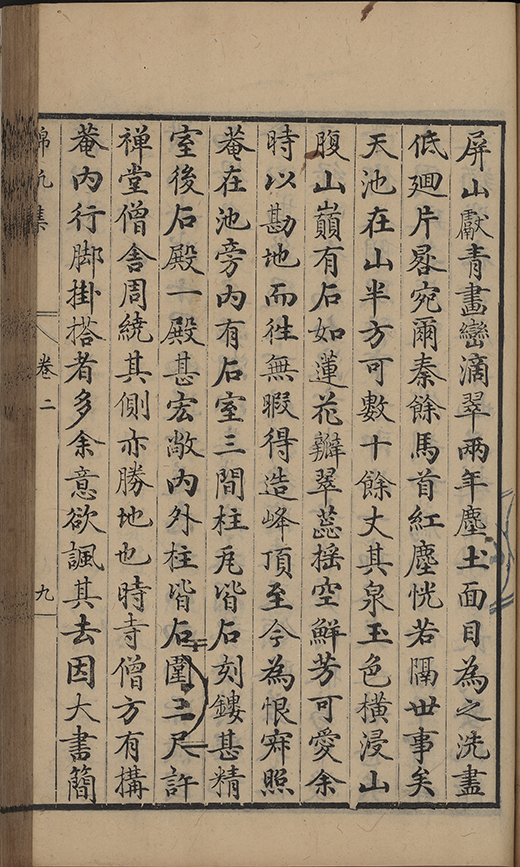 屏山獻青畫巒滴翠兩年塵土面目為之洗盡
低廻片晷宛爾秦餘馬首紅塵恍若隔世事矣
天池在山半方可數十餘丈其泉玉色橫浸山
腹山巔有石如蓮花瓣翠蕊揺空鮮芳可愛余
時以勘地而徃無暇得造峰頂至今為恨寂照
菴在池旁內有石室三間柱瓦皆石刻鏤甚精
室後石殿一殿甚宏敞內外柱皆石圍二尺許
禅堂僧舍周繞其側亦勝地也時寺僧方有搆
菴內行脚掛搭者多余意欲諷其去因大書簡
錦帆集
卷二
九